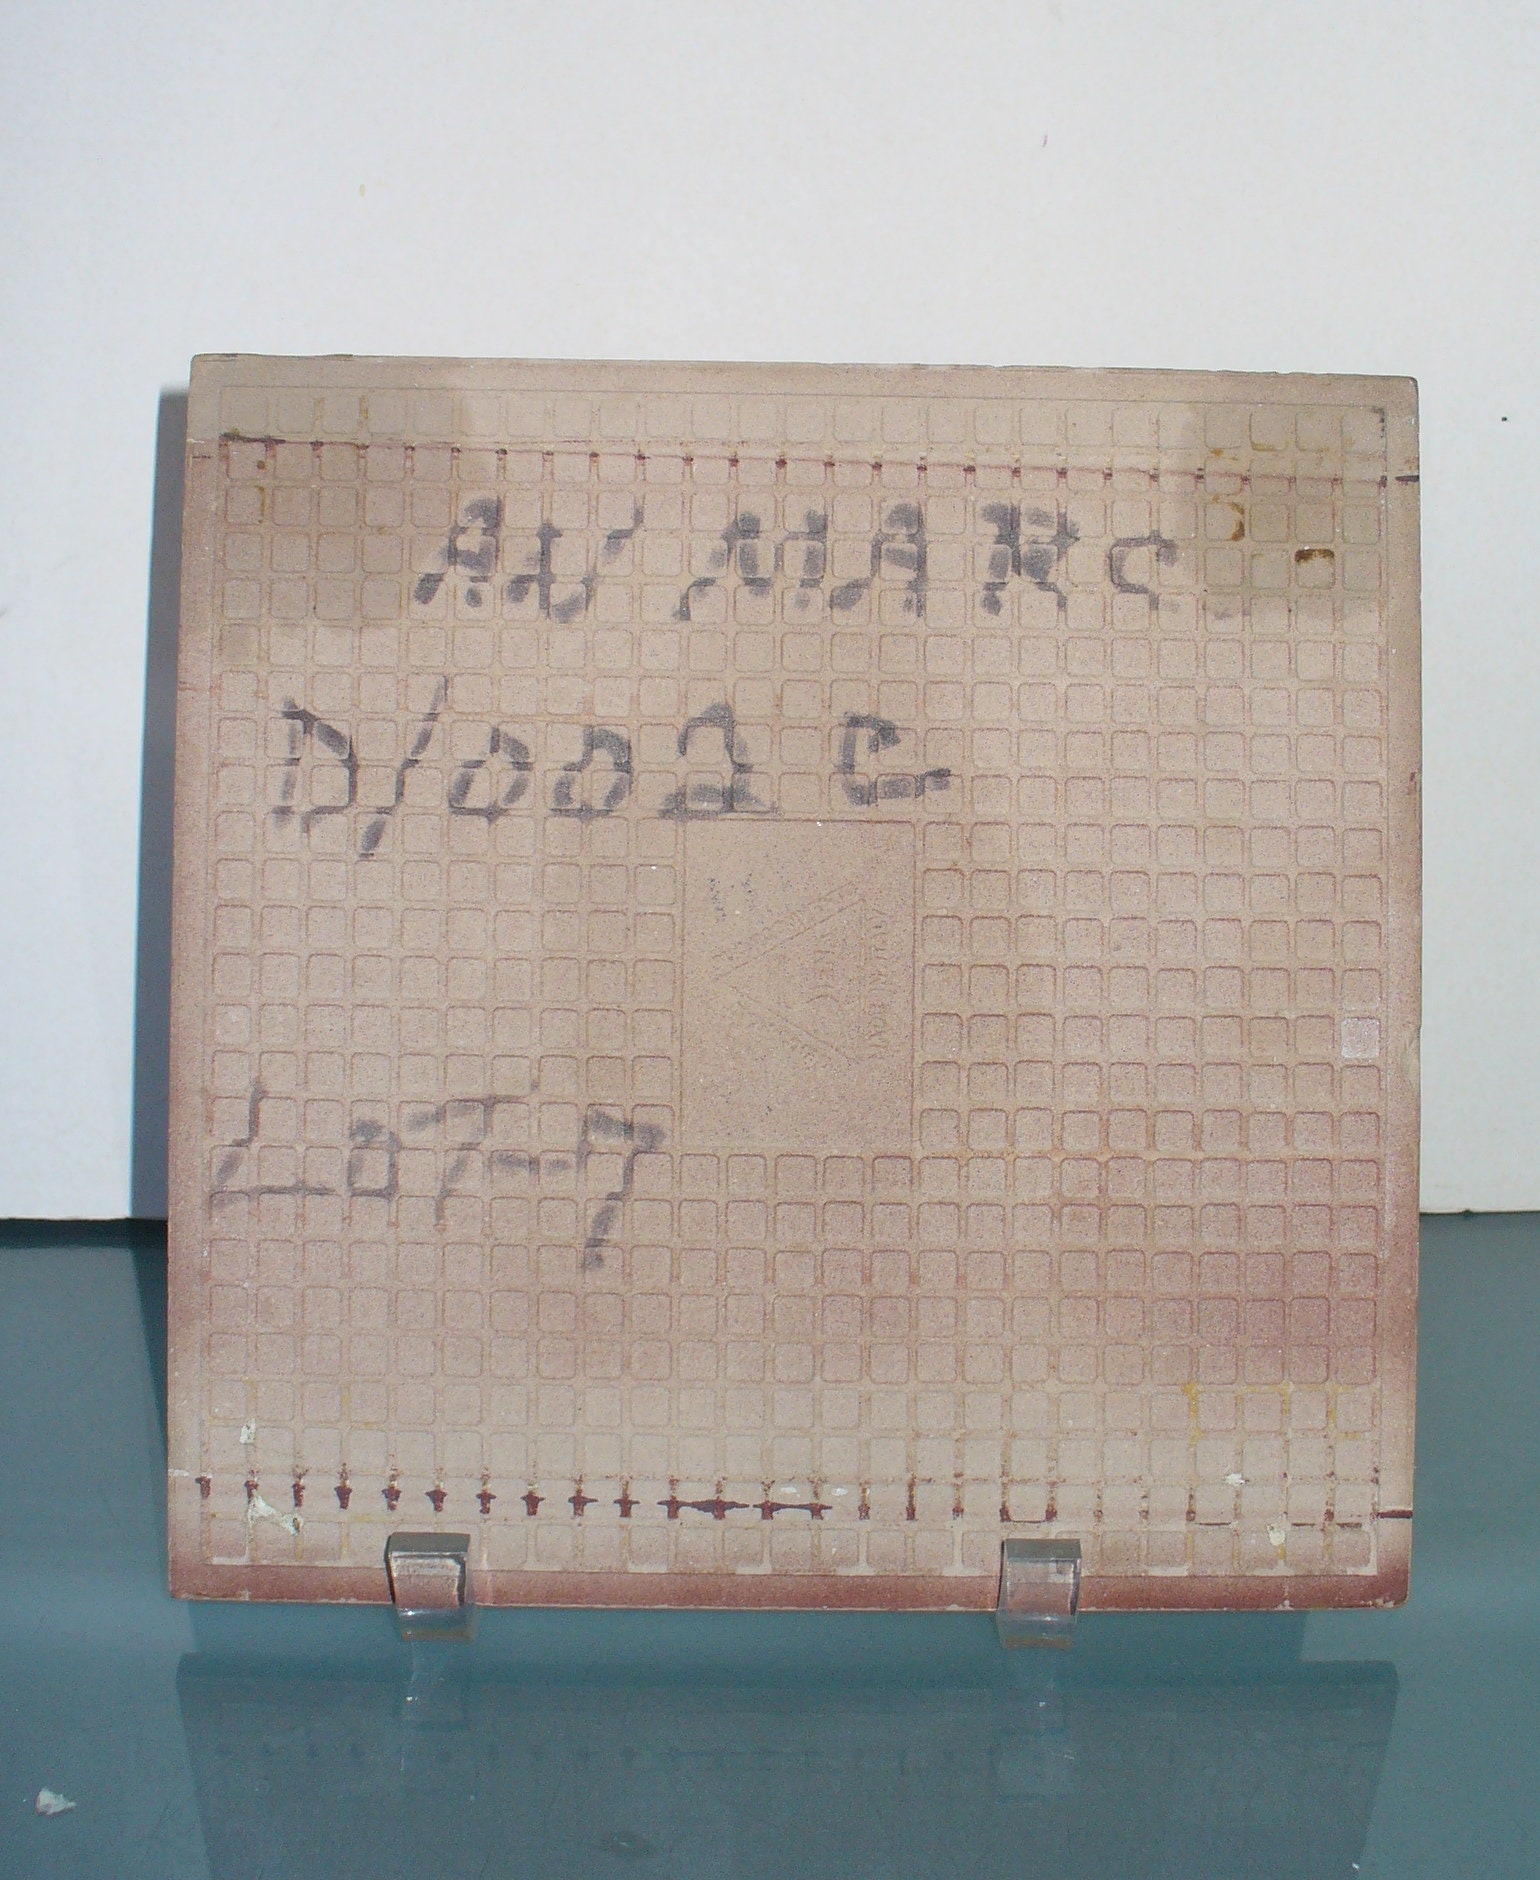 AV MARC
D/002 C
LOT-7